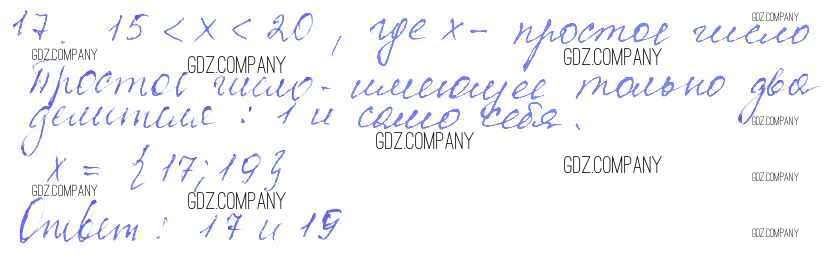 17. 15 < x < 20, где x - простое число
Простое число - имеющее только два
делителя: 1 и само себя.
x = {17; 19}
Ответ: 17 и 19
GDZ.COMPANY
GDZ.COMPANY
GDZ.COMPANY
GDZ.COMPANY
GDZ.COMPANY
GDZ.COMPANY
GDZ.COMPANY
GDZ.COMPANY
GDZ.COMPANY
GDZ.COMPANY
GDZ.COMPANY